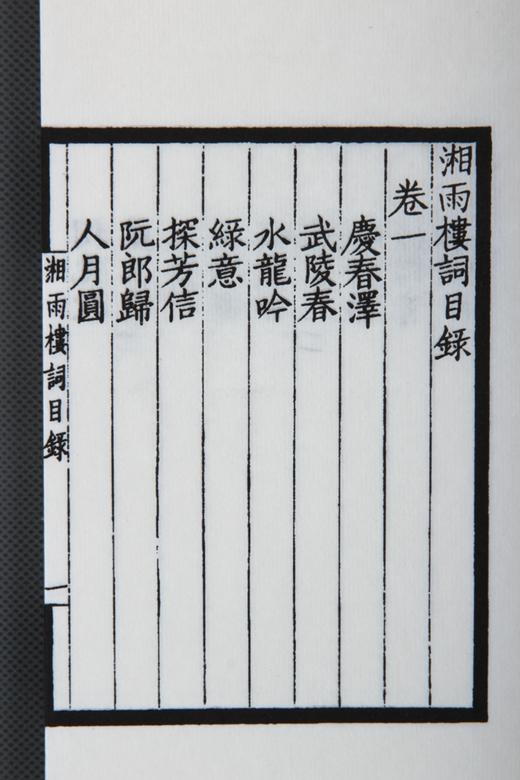 湘雨樓詞目録
卷一
慶春澤
武陵春
水龍吟
緑意
探芳信
阮郎歸
人月圓
湘雨樓詞目録
一